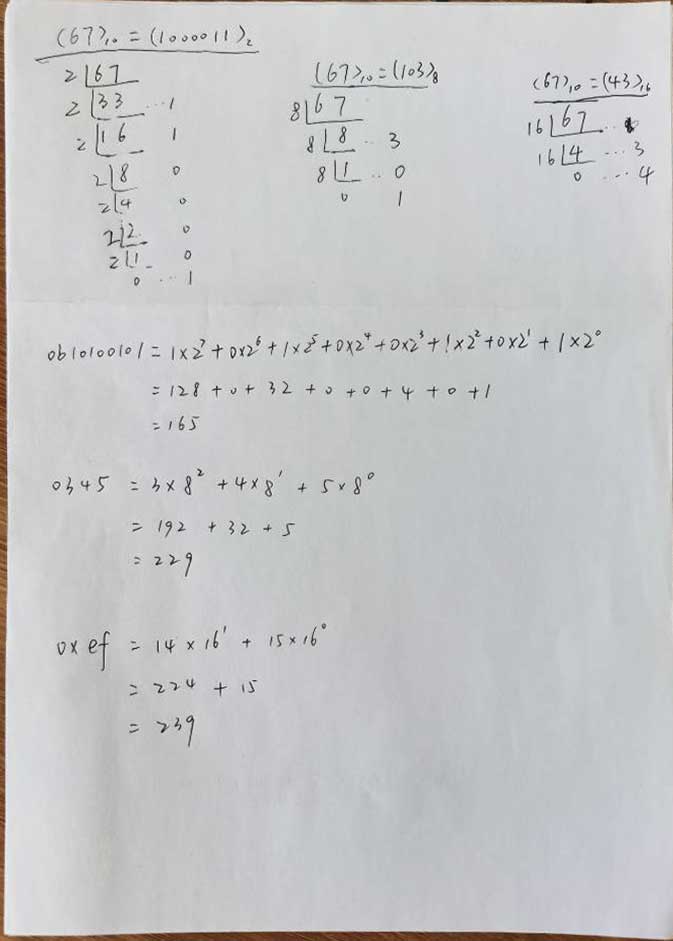 (67)₁₀ = (1000011)₂
2 67
2 33 ...1
2 16 1
2 8 0
2 4 0
2 2 0
2 1 0
0 ...1
(67)₁₀ = (103)₈
8 67
8 8 .. 3
8 1 .. 0
0 1
(67)₁₀ = (43)₁₆
16 67
16 4 ... 3
0 ... 4
0b10100101 = 1×2⁷ + 0×2⁶ + 1×2⁵ + 0×2⁴ + 0×2³ + 1×2² + 0×2¹ + 1×2⁰
= 128 + 0 + 32 + 0 + 0 + 4 + 0 + 1
= 165
0345 = 3×8² + 4×8¹ + 5×8⁰
= 192 + 32 + 5
= 229
0xef = 14×16¹ + 15×16⁰
= 224 + 15
= 239